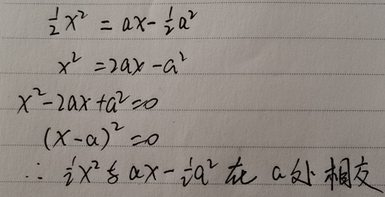 ½x² = ax-½a²
x² = 2ax-a²
x²-2ax+a²=0
(x-a)²=0
∴ ½x²与ax-½a² 在 a处相交